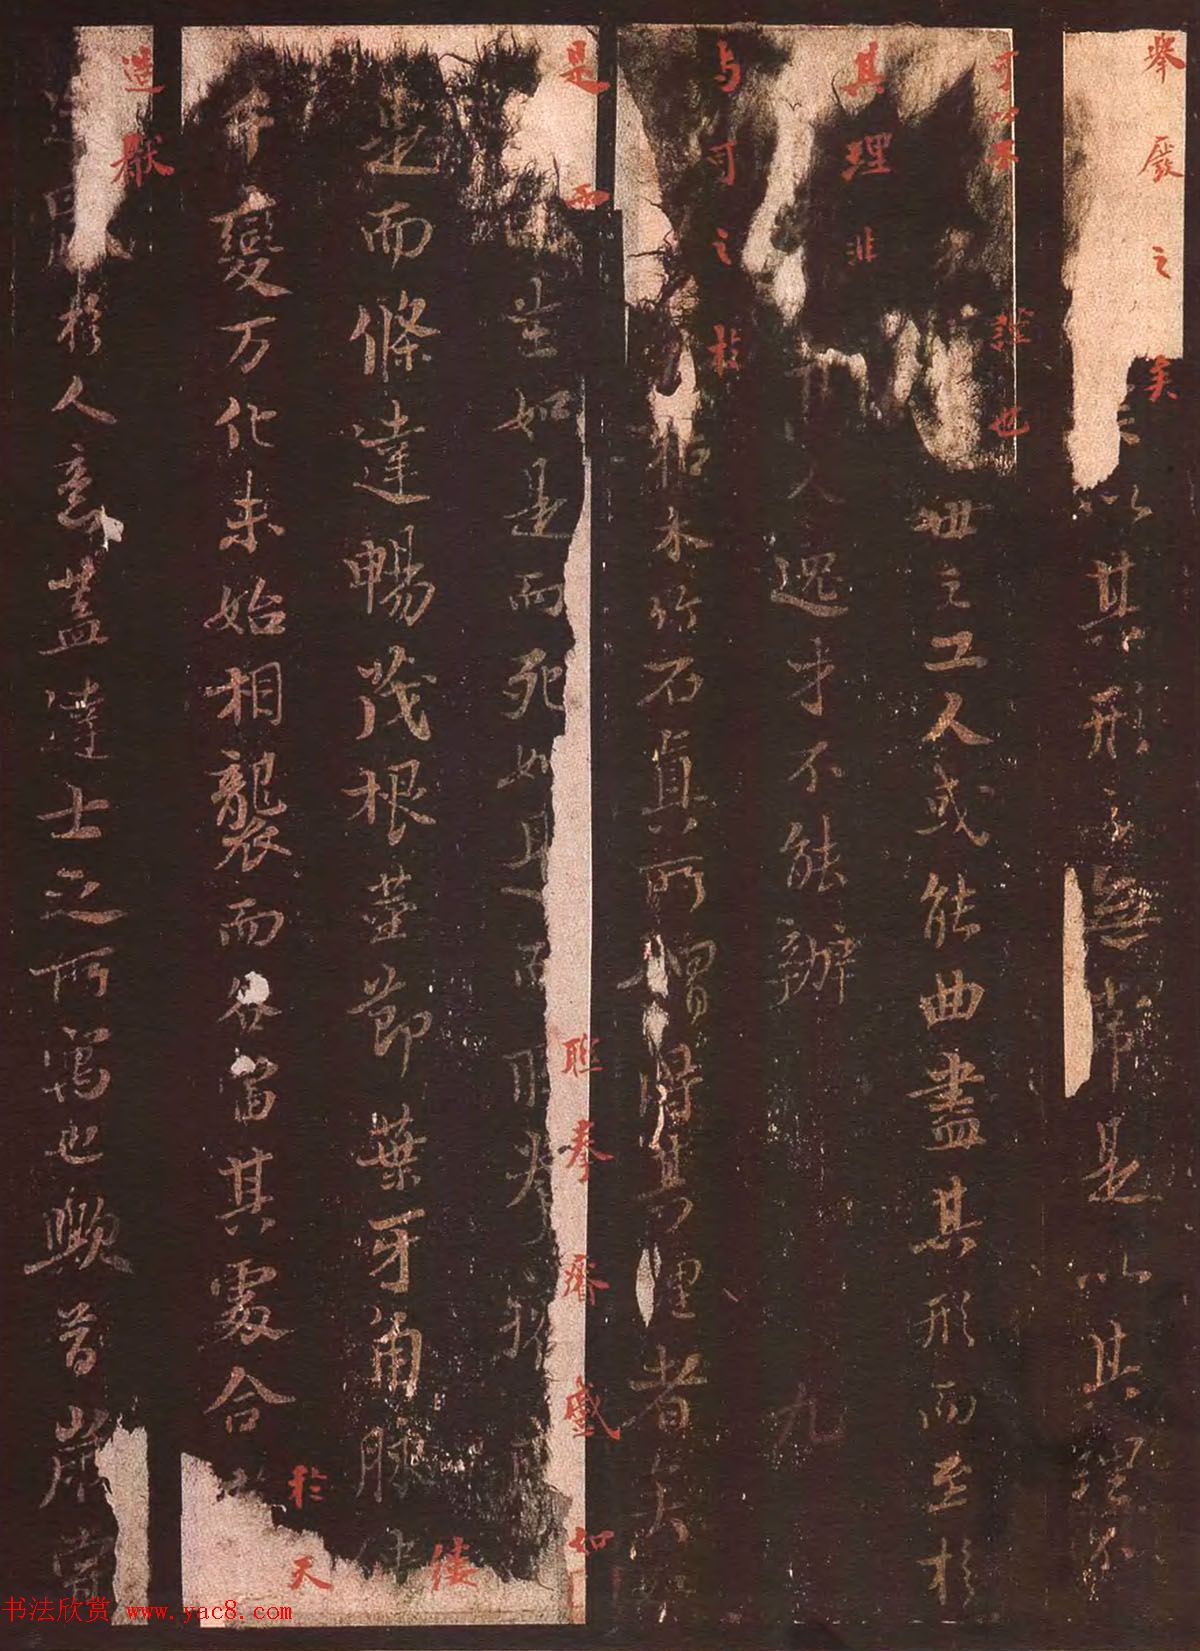 舉廢之矣
以其形之無常是以其理不
可以不謹也
世之工人或能曲盡其形而至於
其理非
人逸才不能辦 九
与可之於
枯木竹石真所謂得其理者矣如
是而
生如是而死如是而聮拳瘠
聮拳瘠蹙如
是而條達暢茂根莖節葉牙角脉
僂
千變万化未始相襲而各當其處合
於天
造猒
於人意蓋達士之所寓也歟昔歲嘗
书法欣赏 www.yac8.com